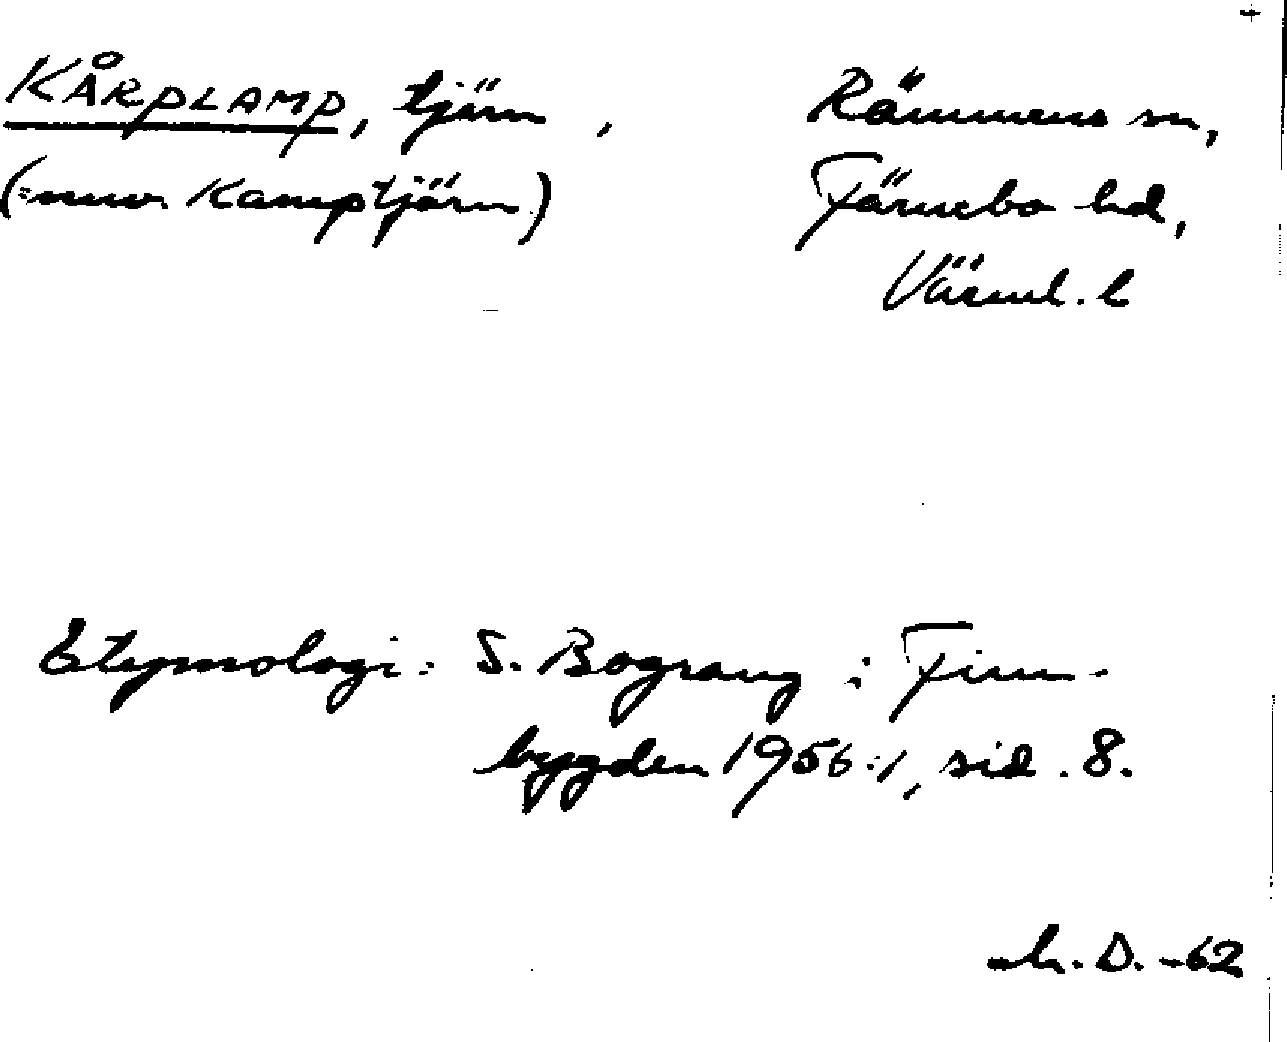 KÅRPLAMP, tjärn ,
(=nuv. Kamptjärn)
Rämmens sn,
Färnebo hd,
Värml. l
Etymologi: S. Bograng i Finn-
bygden 1956:1, sid. 8.
D. -62